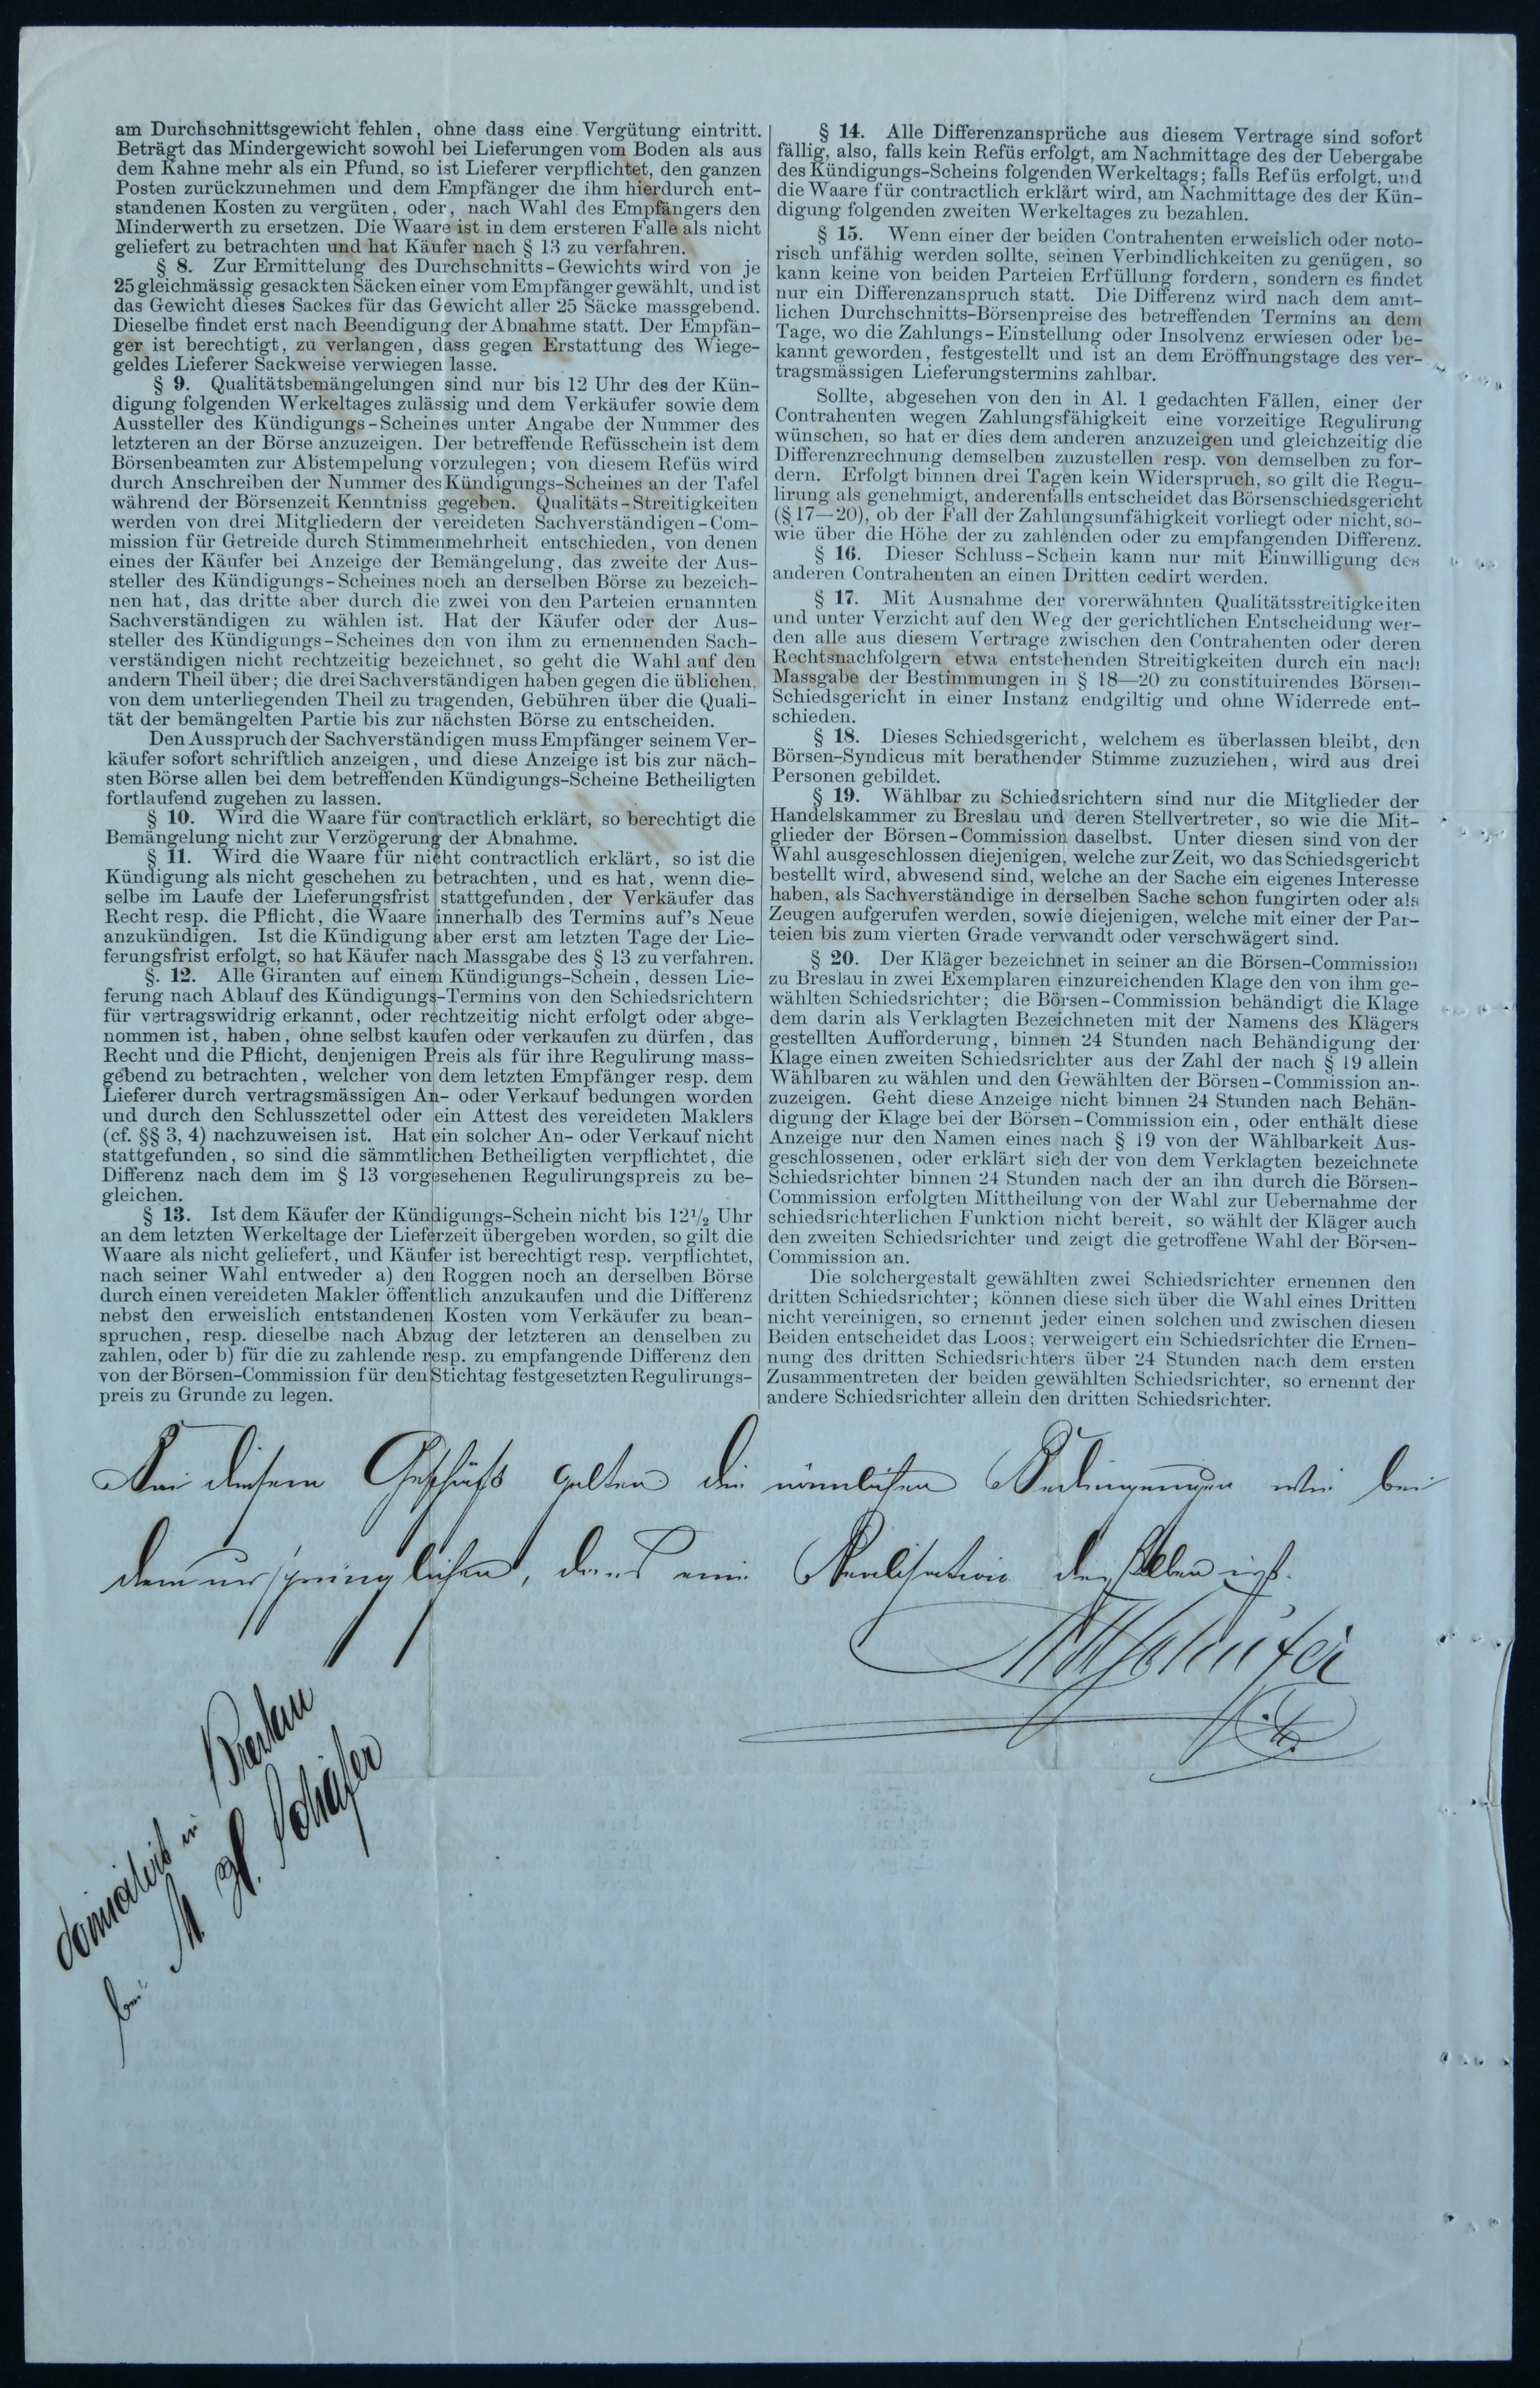 am Durchschnittsgewicht fehlen, ohne dass eine Vergütung eintritt.
Beträgt das Mindergewicht sowohl bei Lieferungen vom Boden als aus
dem Kahne mehr als ein Pfund, so ist Lieferer verpflichtet, den ganzen
Posten zurückzunehmen und dem Empfänger die ihm hierdurch ent-
standenen Kosten zu vergüten, oder, nach Wahl des Empfängers den
Minderwerth zu ersetzen. Die Waare ist in dem ersteren Falle als nicht
geliefert zu betrachten und hat Käufer nach § 13 zu verfahren.
§ 8. Zur Ermittelung des Durchschnitts-Gewichts wird von je
25 gleichmässig gesackten Säcken einer vom Empfänger gewählt, und ist
das Gewicht dieses Sackes für das Gewicht aller 25 Säcke massgebend.
Dieselbe findet erst nach Beendigung der Abnahme statt. Der Empfän-
ger ist berechtigt, zu verlangen, dass gegen Erstattung des Wiege-
geldes Lieferer Sackweise verwiegen lasse.
§ 9. Qualitätsbemängelungen sind nur bis 12 Uhr des der Kün-
digung folgenden Werkeltages zulässig und dem Verkäufer sowie dem
Aussteller des Kündigungs-Scheines unter Angabe der Nummer des
letzteren an der Börse anzuzeigen. Der betreffende Refüsschein ist dem
Börsenbeamten zur Abstempelung vorzulegen; von diesem Refüs wird
durch Anschreiben der Nummer des Kündigungs-Scheines an der Tafel
während der Börsenzeit Kenntniss gegeben. Qualitäts-Streitigkeiten
werden von drei Mitgliedern der vereideten Sachverständigen-Com-
mission für Getreide durch Stimmenmehrheit entschieden, von denen
eines der Käufer bei Anzeige der Bemängelung, das zweite der Aus-
steller des Kündigungs-Scheines noch an derselben Börse zu bezeich-
nen hat, das dritte aber durch die zwei von den Parteien ernannten
Sachverständigen zu wählen ist. Hat der Käufer oder der Aus-
steller des Kündigungs-Scheines den von ihm zu ernennenden Sach-
verständigen nicht rechtzeitig bezeichnet, so geht die Wahl auf den
andern Theil über; die drei Sachverständigen haben gegen die üblichen,
von dem unterliegenden Theil zu tragenden, Gebühren über die Quali-
tät der bemängelten Partie bis zur nächsten Börse zu entscheiden.
Den Ausspruch der Sachverständigen muss Empfänger seinem Ver-
käufer sofort schriftlich anzeigen, und diese Anzeige ist bis zur näch-
sten Börse allen bei dem betreffenden Kündigungs-Scheine Betheiligten
fortlaufend zugehen zu lassen.
§ 10. Wird die Waare für contractlich erklärt, so berechtigt die
Bemängelung nicht zur Verzögerung der Abnahme.
§ 11. Wird die Waare für nicht contractlich erklärt, so ist die
Kündigung als nicht geschehen zu betrachten, und es hat, wenn die-
selbe im Laufe der Lieferungsfrist stattgefunden, der Verkäufer das
Recht resp. die Pflicht, die Waare innerhalb des Termins auf's Neue
anzukündigen. Ist die Kündigung aber erst am letzten Tage der Lie-
ferungsfrist erfolgt, so hat Käufer nach Massgabe des § 13 zu verfahren.
§. 12. Alle Giranten auf einem Kündigungs-Schein, dessen Lie-
ferung nach Ablauf des Kündigungs-Termins von den Schiedsrichtern
für vertragswidrig erkannt, oder rechtzeitig nicht erfolgt oder abge-
nommen ist, haben, ohne selbst kaufen oder verkaufen zu dürfen, das
Recht und die Pflicht, denjenigen Preis als für ihre Regulirung mass-
gebend zu betrachten, welcher von dem letzten Empfänger resp. dem
Lieferer durch vertragsmässigen An- oder Verkauf bedungen worden
und durch den Schlusszettel oder ein Attest des vereideten Maklers
(cf. §§ 3, 4) nachzuweisen ist. Hat ein solcher An- oder Verkauf nicht
stattgefunden, so sind die sämmtlichen Betheiligten verpflichtet, die
Differenz nach dem im § 13 vorgesehenen Regulirungspreis zu be-
gleichen.
§ 13. Ist dem Käufer der Kündigungs-Schein nicht bis 12½ Uhr
an dem letzten Werkeltage der Lieferzeit übergeben worden, so gilt die
Waare als nicht geliefert, und Käufer ist berechtigt resp. verpflichtet,
nach seiner Wahl entweder a) den Roggen noch an derselben Börse
durch einen vereideten Makler öffentlich anzukaufen und die Differenz
nebst den erweislich entstandenen Kosten vom Verkäufer zu bean-
spruchen, resp. dieselbe nach Abzug der letzteren an denselben zu
zahlen, oder b) für die zu zahlende resp. zu empfangende Differenz den
von der Börsen-Commission für den Stichtag festgesetzten Regulirungs-
preis zu Grunde zu legen.
§ 14. Alle Differenzansprüche aus diesem Vertrage sind sofort
fällig, also, falls kein Refüs erfolgt, am Nachmittage des der Uebergabe
des Kündigungs-Scheins folgenden Werkeltags; falls Refüs erfolgt, und
die Waare für contractlich erklärt wird, am Nachmittage des der Kün-
digung folgenden zweiten Werkeltages zu bezahlen.
§ 15. Wenn einer der beiden Contrahenten erweislich oder noto-
risch unfähig werden sollte, seinen Verbindlichkeiten zu genügen, so
kann keine von beiden Parteien Erfüllung fordern, sondern es findet
nur ein Differenzanspruch statt. Die Differenz wird nach dem amt-
lichen Durchschnitts-Börsenpreise des betreffenden Termins an dem
Tage, wo die Zahlungs-Einstellung oder Insolvenz erwiesen oder be-
kannt geworden, festgestellt und ist an dem Eröffnungstage des ver-
tragsmässigen Lieferungstermins zahlbar.
Sollte, abgesehen von den in Al. 1 gedachten Fällen, einer der
Contrahenten wegen Zahlungsfähigkeit eine vorzeitige Regulirung
wünschen, so hat er dies dem anderen anzuzeigen und gleichzeitig die
Differenzrechnung demselben zuzustellen resp. von demselben zu for-
dern. Erfolgt binnen drei Tagen kein Widerspruch, so gilt die Regu-
lirung als genehmigt, anderenfalls entscheidet das Börsenschiedsgericht
(§ 17—20), ob der Fall der Zahlungsunfähigkeit vorliegt oder nicht, so-
wie über die Höhe der zu zahlenden oder zu empfangenden Differenz.
§ 16. Dieser Schluss-Schein kann nur mit Einwilligung des
anderen Contrahenten an einen Dritten cedirt werden.
§ 17. Mit Ausnahme der vorerwähnten Qualitätsstreitigkeiten
und unter Verzicht auf den Weg der gerichtlichen Entscheidung wer-
den alle aus diesem Vertrage zwischen den Contrahenten oder deren
Rechtsnachfolgern etwa entstehenden Streitigkeiten durch ein nach
Massgabe der Bestimmungen in § 18—20 zu constituirendes Börsen-
Schiedsgericht in einer Instanz endgiltig und ohne Widerrede ent-
schieden.
§ 18. Dieses Schiedsgericht, welchem es überlassen bleibt, den
Börsen-Syndicus mit berathender Stimme zuzuziehen, wird aus drei
Personen gebildet.
§ 19. Wählbar zu Schiedsrichtern sind nur die Mitglieder der
Handelskammer zu Breslau und deren Stellvertreter, so wie die Mit-
glieder der Börsen-Commission daselbst. Unter diesen sind von der
Wahl ausgeschlossen diejenigen, welche zur Zeit, wo das Schiedsgericht
bestellt wird, abwesend sind, welche an der Sache ein eigenes Interesse
haben, als Sachverständige in derselben Sache schon fungirten oder als
Zeugen aufgerufen werden, sowie diejenigen, welche mit einer der Par-
teien bis zum vierten Grade verwandt oder verschwägert sind.
§ 20. Der Kläger bezeichnet in seiner an die Börsen-Commission
zu Breslau in zwei Exemplaren einzureichenden Klage den von ihm ge-
wählten Schiedsrichter; die Börsen-Commission behändigt die Klage
dem darin als Verklagten Bezeichneten mit der Namens des Klägers
gestellten Aufforderung, binnen 24 Stunden nach Behändigung der
Klage einen zweiten Schiedsrichter aus der Zahl der nach § 19 allein
Wählbaren zu wählen und den Gewählten der Börsen-Commission an-
zuzeigen. Geht diese Anzeige nicht binnen 24 Stunden nach Behän-
digung der Klage bei der Börsen-Commission ein, oder enthält diese
Anzeige nur den Namen eines nach § 19 von der Wählbarkeit Aus-
geschlossenen, oder erklärt sich der von dem Verklagten bezeichnete
Schiedsrichter binnen 24 Stunden nach der an ihn durch die Börsen-
Commission erfolgten Mittheilung von der Wahl zur Uebernahme der
schiedsrichterlichen Funktion nicht bereit, so wählt der Kläger auch
den zweiten Schiedsrichter und zeigt die getroffene Wahl der Börsen-
Commission an.
Die solchergestalt gewählten zwei Schiedsrichter ernennen den
dritten Schiedsrichter; können diese sich über die Wahl eines Dritten
nicht vereinigen, so ernennt jeder einen solchen und zwischen diesen
Beiden entscheidet das Loos; verweigert ein Schiedsrichter die Ernen-
nung des dritten Schiedsrichters über 24 Stunden nach dem ersten
Zusammentreten der beiden gewählten Schiedsrichter, so ernennt der
andere Schiedsrichter allein den dritten Schiedsrichter.
Bei diesem Geschäft gelten die nämlichen Bedingungen wie bei
dem ursprünglichen, da es eine Realisation desselben ist.
M H Schäfer
domicilirt in Breslau
bei M. H. Schäfer